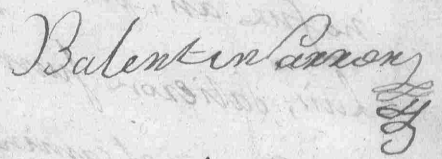 Balentin Parron